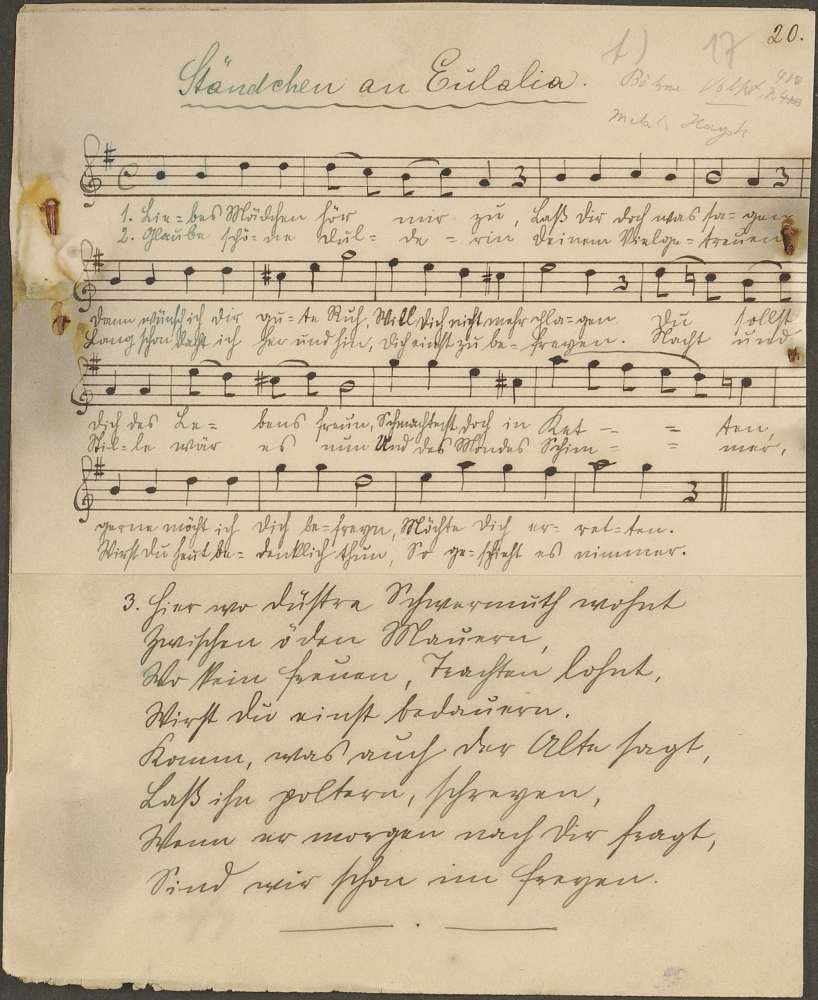 20.
17
Ständchen an Eulalia.
Böhme
1. Lie=bes Mädchen hör mir zu, Laß dir doch was sa=gen
2. Glaube schö=ne Dul=de=rin deinem Vielge=treuen
dann wünsch ich dir gu=te Ruh, Will dich nicht mehr plagen du sollst
Lang schon dacht ich her und hin, dich einst zu be=freyen. Nacht und
dich des Le=bens freun, Schmachtest doch in Ket==ten,
Stil=le wär es nun Und des Mondes Schim==mer,
gerne möcht ich dich be=freyn, Möchte dich er=ret=ten.
Wirst du heut be=denklich thun, So ge=schieht es nimmer.
3. Hier wo düstre Schwermuth wohnt
Zwischen öden Mauern,
Wo kein freuen, Trachten lohnt,
Wirst du einst bedauern.
Komm, was auch der Alte sagt,
Laß ihn poltern, schreyen,
Wenn er morgen nach dir fragt,
Sind wir schon im freyen.